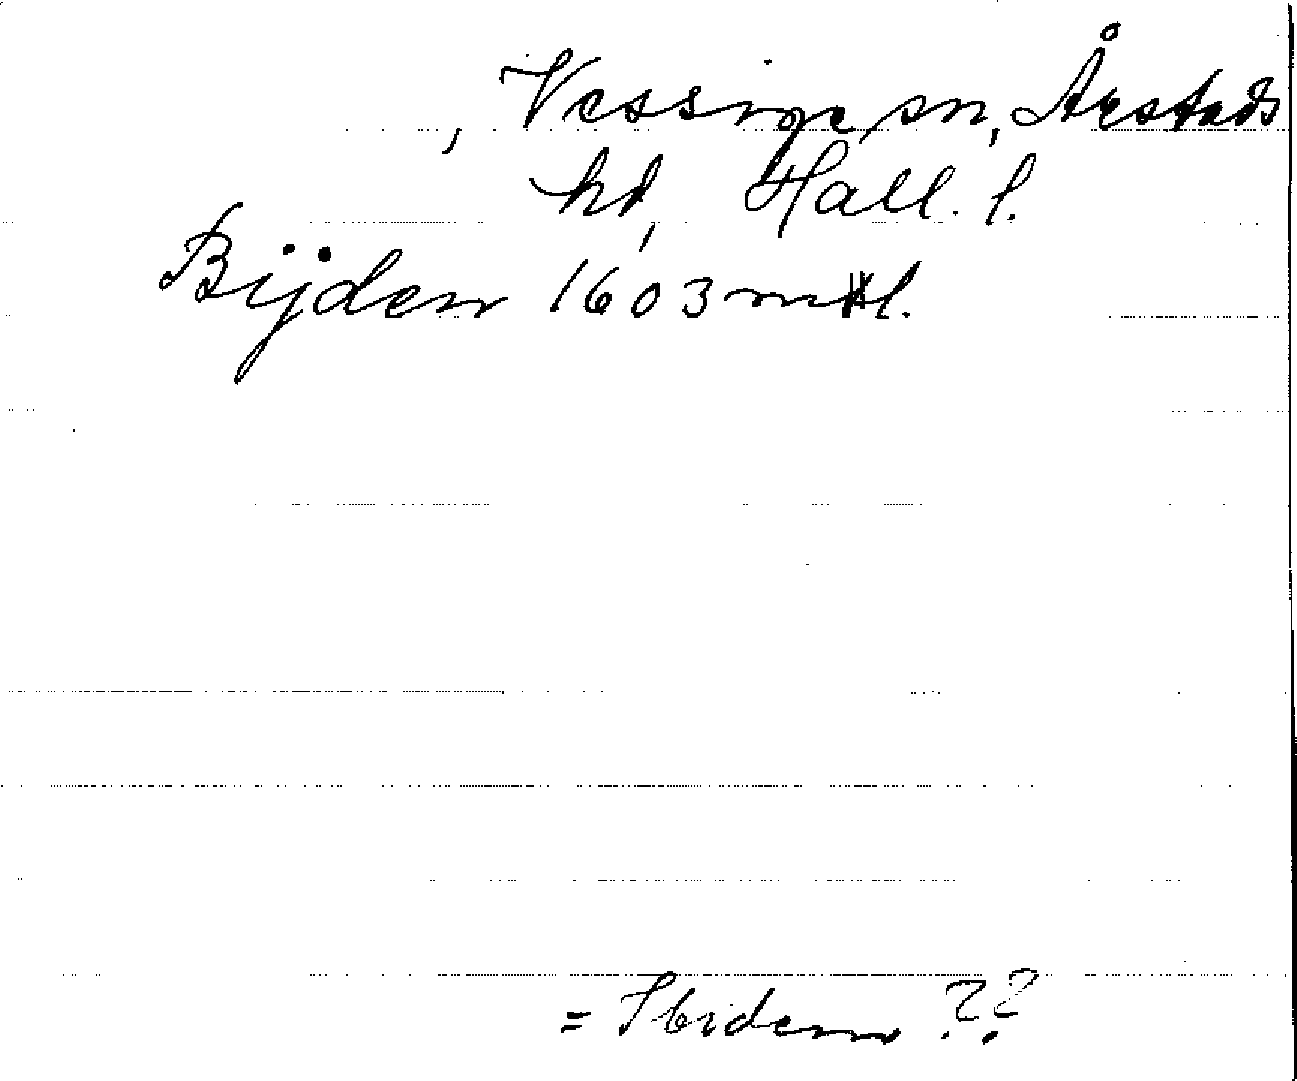 , Vessige sn, Årstads
hd, Hall. l.
Bijden 1603 mtl.
= Ibidem ??